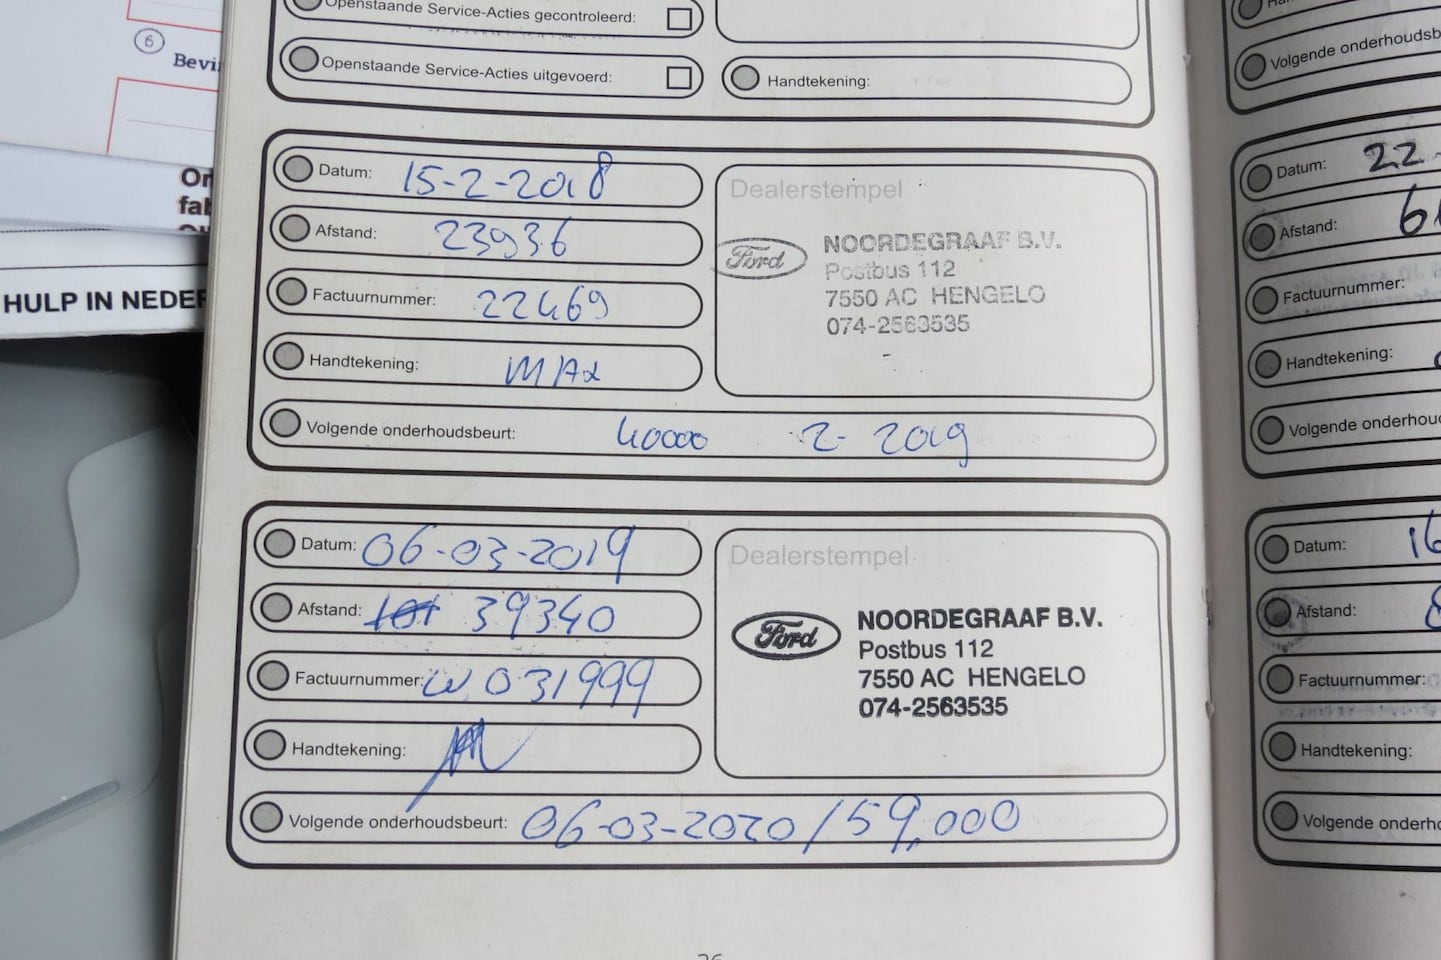 Openstaande Service-Acties gecontroleerd:
Openstaande Service-Acties uitgevoerd:
Handtekening:
Datum: 15-2-2018
Afstand: 23936
Factuurnummer: 22469
Handtekening:
Volgende onderhoudsbeurt: 40000 2-2019
Dealerstempel
Ford
NOORDEGRAAF B.V.
Postbus 112
7550 AC HENGELO
074-2563535
Datum: 06-03-2019
Afstand: 39340
Factuurnummer: W031999
Handtekening:
Volgende onderhoudsbeurt: 06-03-2020/59,000
Dealerstempel
Ford
NOORDEGRAAF B.V.
Postbus 112
7550 AC HENGELO
074-2563535
6
HULP IN NEDER
Volgende onderhoudsb
Datum: 22-
Afstand:
Factuurnummer:
Handtekening:
Volgende onderhou
Datum: 16
Afstand: 8
Factuurnummer:
Handtekening:
Volgende onderho